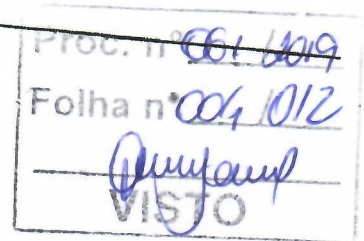 Proc. nº 001/2019
Folha nº 004/012
VISTO